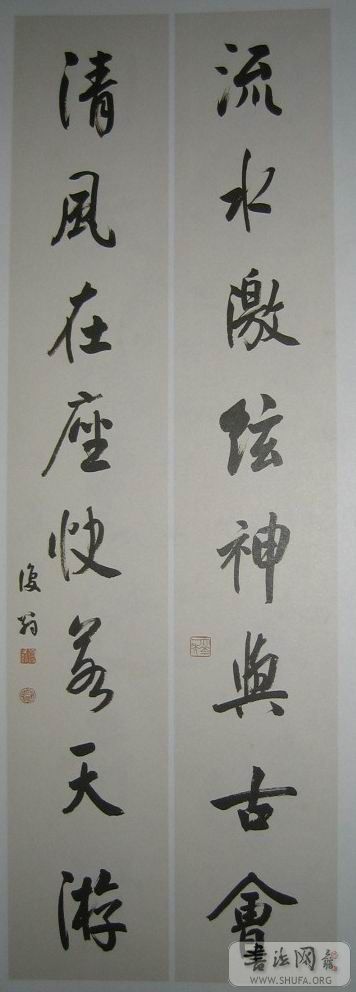 流水激弦神與古會
清風在座快若天游
復翁
書法网
WWW.SHUFA.ORG